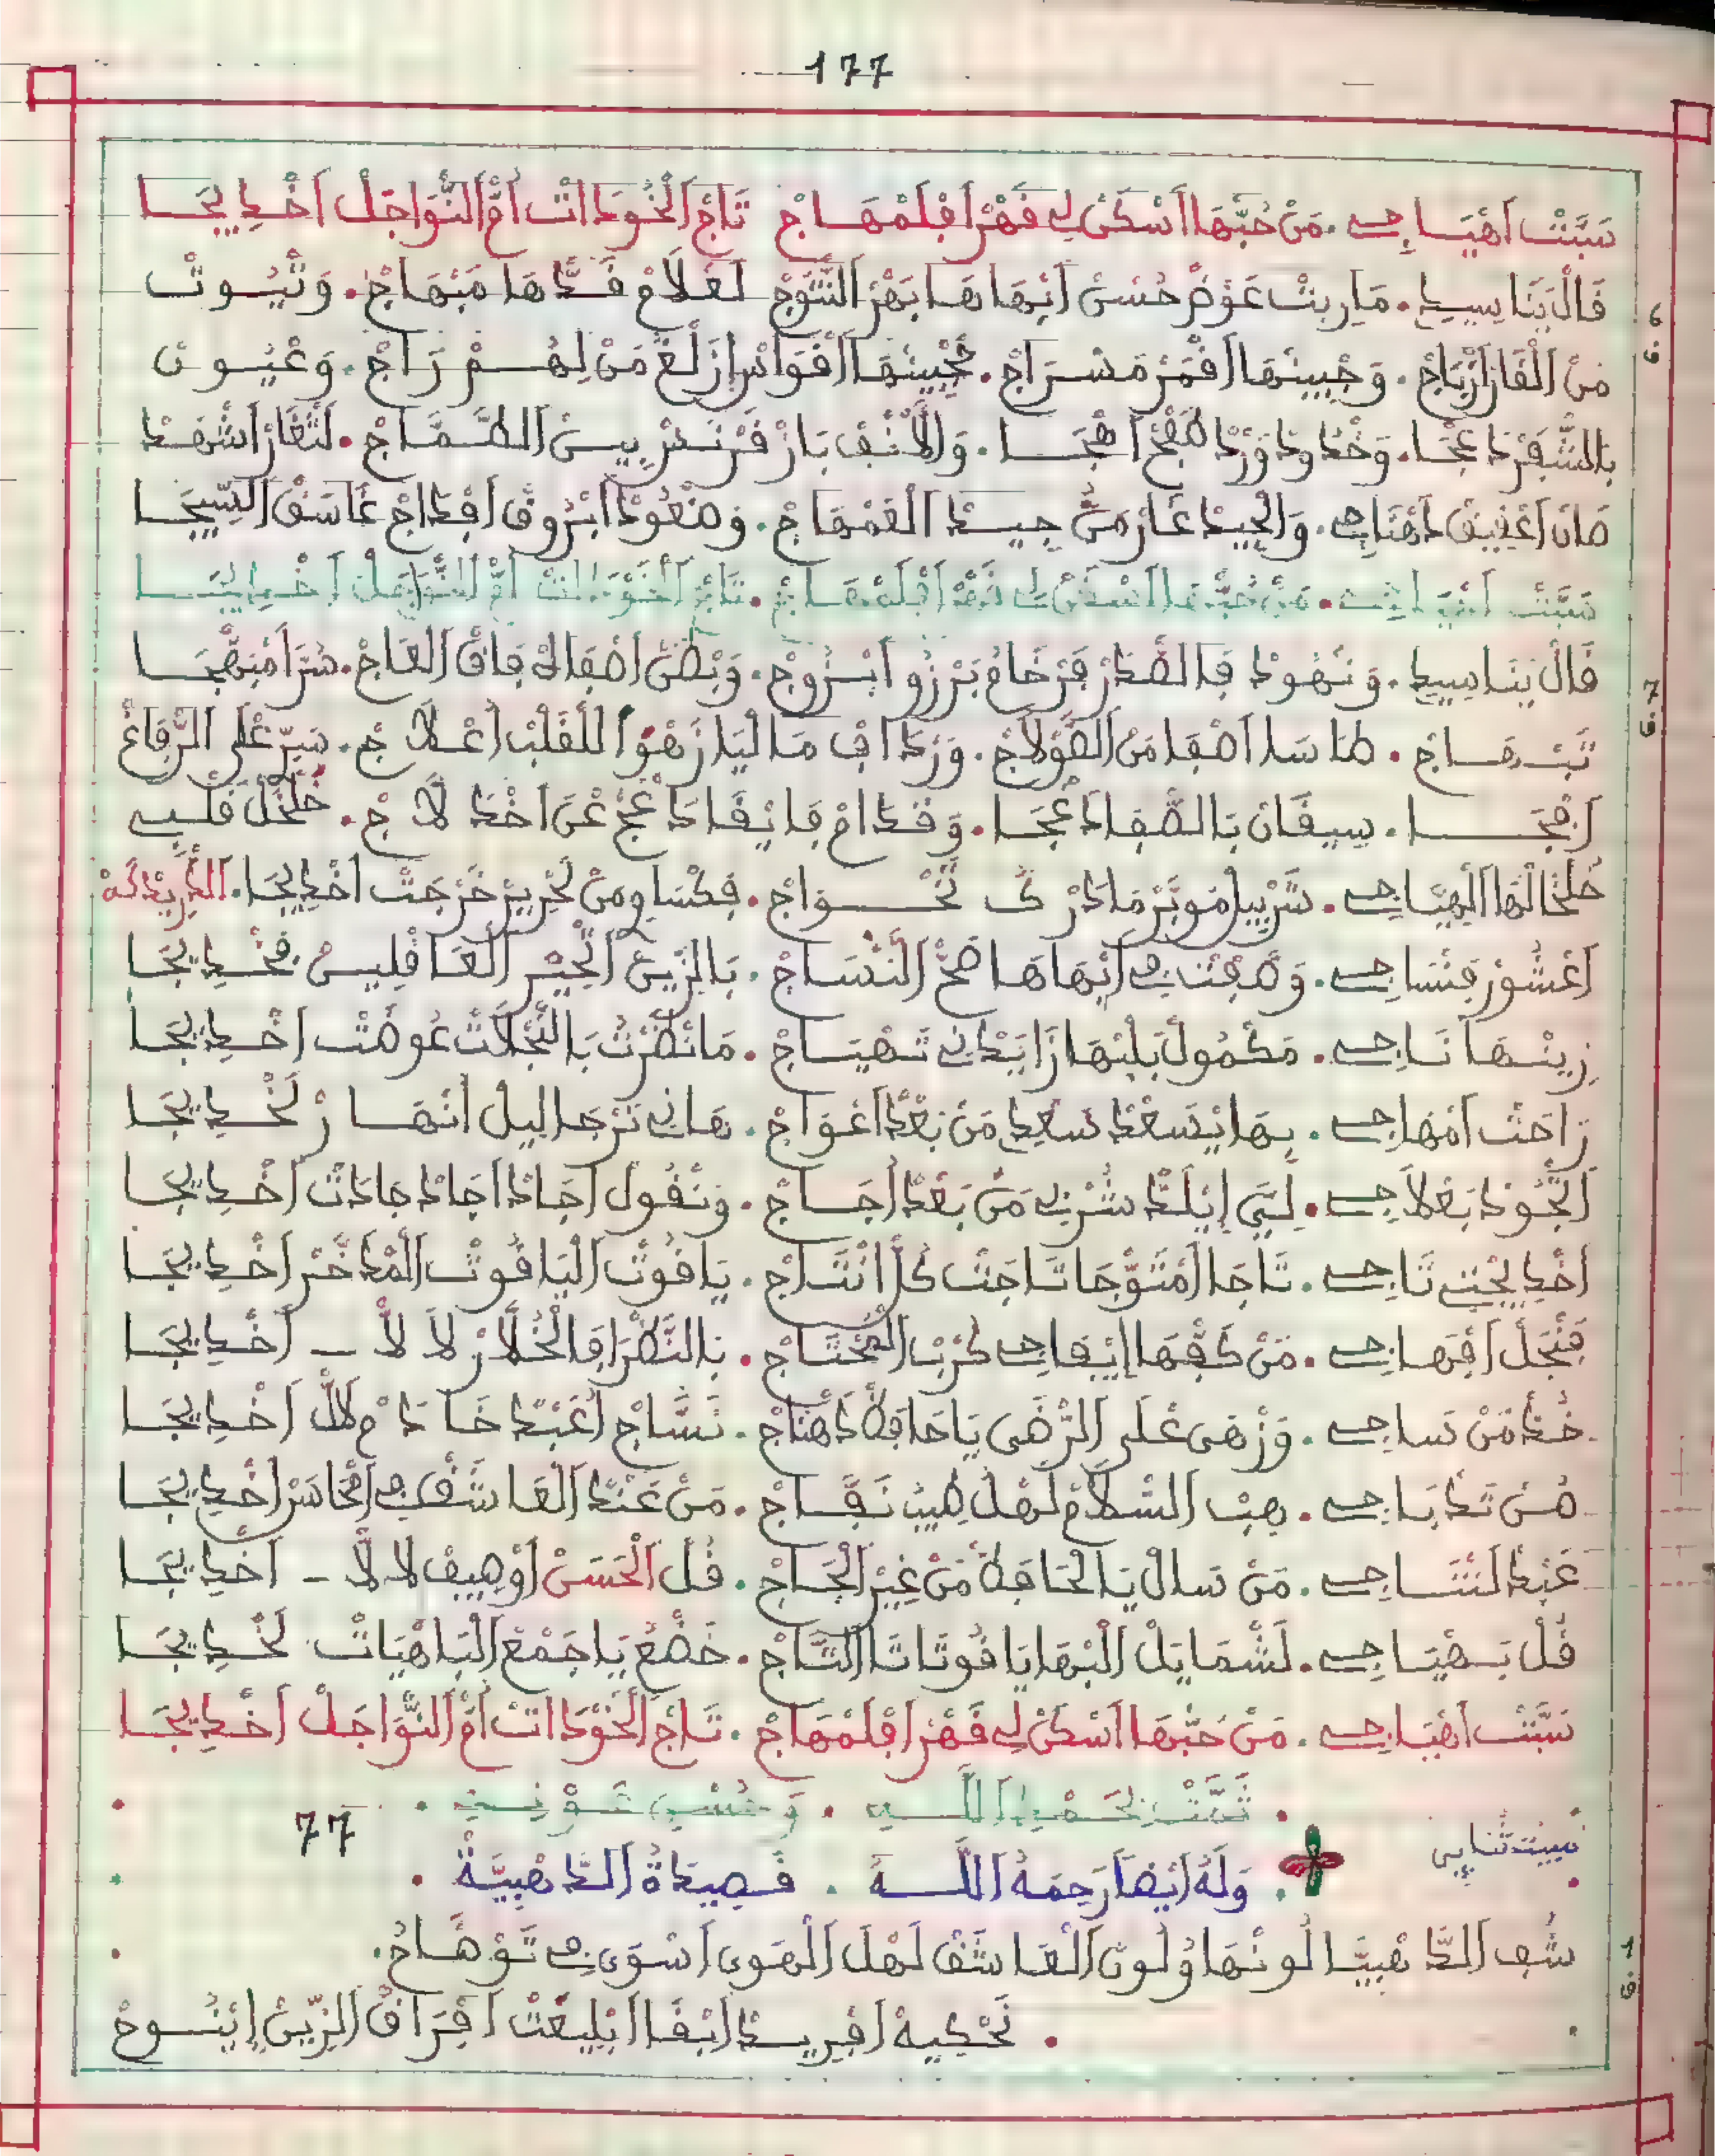 177
سَبَّتْ اَهْيَاجِي . مَنْ حُبّهَا اَسْكَنْ لِي فَهْرْ اَفْلَمْهَاجْ تَاجْ اَلْخُودَاتْ اُمّْ اَلنّْوَاجَلْ اَخْدِيجَا
6
قَالْ يَنَا سِيدِي . مَارِيتْ عَوْضْ حُسْنْ اَبْهَاهَا بَهْرْ اَلتّْوَجْ لَغْلَامْ قَدّهَا مَبْهَاجْ . وَتْيُوتْ
ق
مَنْ اَلْقَازْ اَرْيَاجْ . وَجْبِينْهَا اَقْمَرْ مَسْرَاجْ . حَجْبِينْهَا اَقْوَاسْ اِزَلْغْ مَنْ لِهُمْ رَاجْ . وَعْيُونْ
بَالشّْفَرْ دَعْجَا . وَخْدُودْ وَرْدْ اَهْجَا . وَالْاَنْفْ بَازْ قَرْنَسْ بِينْ اَلطَّمَّاجْ . لَتْغَارْ اَشْهَدْ
صَانْ اَعْقِيقْ . وَالْجِيدْ عَارْ مَنْ جِيدْ اَلْغَمْهَاجْ . وَصْعُودْ اَبْرُوقْ اَفْدَاجْ غَاسَقْ اَلسِّيجَا
سَبَّتْ اَهْيَاجِي . مَنْ حُبّهَا اَسْكَنْ لِي فَهْرْ اَفْلَمْهَاجْ . تَاجْ اَلْخُودَاتْ اُمّْ اَلنّْوَاجَلْ اَخْدِيجَا
7
قَالْ يَنَا سِيدِي . وَنْهُودْ فَالصّْدَرْ فَرْخَامْ بَرْزُو اَبْزُوجْ . وَبْطَنْ اَصْفَالِي فَاقْ اَلْعَاجْ . سُرَّا مْبَهْجَا
ق
تَبْهَاجْ . طَاسَا اَصْفَا مَنْ اَلصَّوْلَاجْ . وَرْدَافْ مَالْيَا زَهْوْ اَللْقَلْبْ اَعْلَاجْ . سِرّْ عْلَى اَلرّْفَاغْ
اَرَفْجَا . سِيقَانْ بَالصّْفَا دَعْجَا . وَقْدَامْ مَا يْفَادَعْجْ عْنَ اَخْدَلَّاجْ . خَلْخَلْ قَلْبِي
خَلْخَالْهَا اَلْهِيَّاجِي . شَرْبِيلْ مُوبَّرْ مَادْرَكْ تَحْوَاجْ . فَكْسَاوِي مَنْ لَحْرِيرْ خَرْجَتْ اَخْدِيجَا . الدْرِيدْكَة
اَعْشُورْ فَنْسَاجِي . وَصْفَتْ فِي اَبْهَاهَا صَحّْ اَلنَّسَّاجْ . بَالزِّينْ اَلْحِيرْ اَلْعَاقْلِينْ فَخْدِيجَا
زِينْهَا نَاجِي . مَكْمُولْ بَلْبْهَا زَايَدْنِي تَهْيَاجْ . مَا نْظَرْتْ بَالنَّجْلَاتْ عُوضَتْ اَخْدِيجَا
رَاحَتْ اَمْهَاجِي . بِهَا يَسْعَدْ سَعْدِي مَنْ بَعْدْ اَعْوَاجْ . هَانِي نَرْجَا لِيلْ اَنْهَارْ لَخْدِيجَا
اَلْجُودْ بَغْلَاجِي . لِيَّ إِيلَدّْ شَرْبِي مَنْ بَعْدْ اُجَاجْ . وَنْقُولْ اَجَادْ اَجَادْ جَادَتْ اَخْدِيجَا
اَخْدِيجْتِي تَاجِي . تَاجَا اَمْتَوّْجَا تَاجَتْ كُلّْ اَنْتَاجْ . يَاقُوتْ اَلْيَاقُوتْ اَلْمْدَخَّرْ اَخْدِيجَا
فَنْجَلْ اَفْهَاجِي . مَنْ كَفّهَا إِيفَاجِي كَرْبْ اَلْمُحْتَاجْ . بَالنَّظْرَا فَالْخُلَّارْ لَالَا - اَخْدِيجَا
خُدْ مَنْ نَسَاجِي . وَزْهَى عْلَى اَلرّْضَى يَا حَافَظْ دَهْتَاجْ . نَسَّاجْ اَعْبَدْ خَادَمْ لَالَّ اَخْدِيجَا
حُسْنْ تَدْبَاجِي . هِبْ اَلسْلَامْ لَهْلْ طِيبْ نَفَّاجْ . مَنْ عَنْدْ اَلْعَاشَقْ فِي اَمْحَاسَنْ اَخْدِيجَا
عَبْدْ اَلنْتَاجِي . مَنْ سَالْ يَا اَلْحَافَظْ مَنْ غِيرْ اَلْجَاجْ . قُلْ اَلْحَسَنْ اَوْصِيفْ لَالَّا - اَخْدِيجَا
قُلْ بَهْيَاجِي . لَشْمَايَلْ اَلْبْهَا يَاقُوتَاتَا اَلتَّاجْ . خَضْعْ يَا جَمْعْ اَلْبَاهْيَاتْ لَخْدِيجَا
سَبَّتْ اَهْيَاجِي . مَنْ حُبّهَا اَسْكَنْ لِي فَهْرْ اَفْلَمْهَاجْ . تَاجْ اَلْخُودَاتْ اُمّْ اَلنّْوَاجَلْ اَخْدِيجَا
. تَمَّتْ بِحَمْدِ اَللَّهِ . وَحُسْنِ عَوْنِهِ .
77
مبيت ثنايي
. وَلَهُ اَيْضاً رَحِمَهُ اَللَّهُ . قَصِيدَةُ اَلدَّاهْبِيَّةْ .
1
شُفْ اَلدَّاهْبِيَّا لُونْهَا وُلُونْ اَلْعَاشَقْ لَهْلْ اَلْهَوَى اَسْوَى فِي تَوْهَاجْ .
ق
. نَحْكِيهْ اَفْرِيدْ اَبْقَا اَبْلِيعَتْ اَفْرَاقْ اَلزِّينْ إِينُوحْ